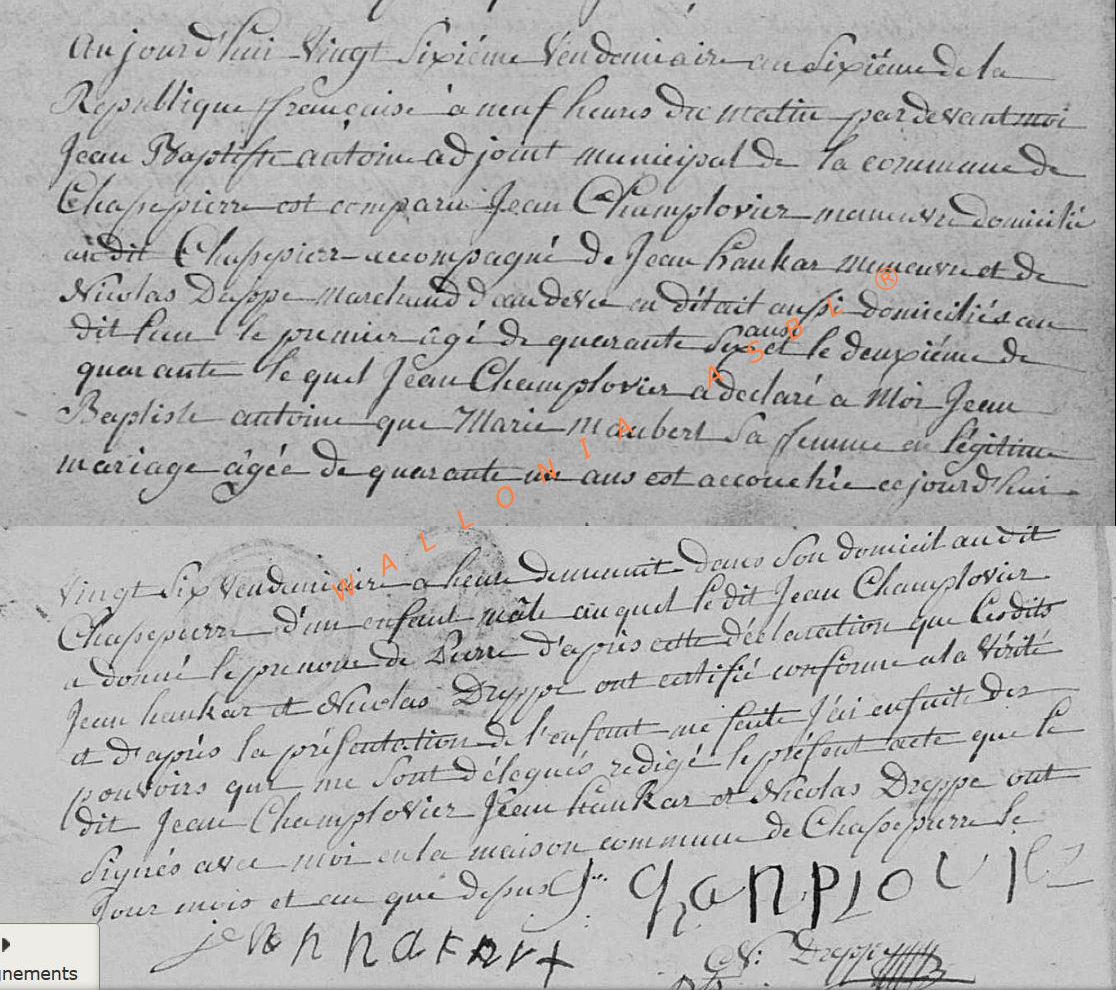 Aujourd'hui Vingt Sixiéme Vendemiaire an Sixiéme de la
Republique françoise a neuf heures du matin pardevant moi
Jean Baptiste antoine adjoint municipal de la commune de
Chassepierre est comparu Jean Champlovier maneuvre domicilié
au dit Chassepierre accompagné de Jean hankar meneuvre et de
Nicolas Dreppe marchand d'eaudevie en détait aussi domiciliés au
dit lieu le premier âgé de quarante Six ans et le deuxiéme de
quarante le quel Jean Champlovier a declaré a Moi Jean
Baptiste antoine que Marie maubert Sa femme en légitime
mariage âgée de quarante un ans est accouchée cejourd'hui
Vingt Six Vendemiaire a heure de minuit dans Son domicil audit
Chassepierre d'un enfant mâle auquel le dit Jean Champlovier
a donné le prenom de Pierre d'après cette déclaration que lesdits
Jean hankar et Nicolas Dreppe ont certifié conforme a la Vérité
et d'après la présentation de l'enfant me faite J'ai ensuite des
pouvoirs qui me Sont délegués redigé le présent acte que le
dit Jean Champlovier Jean hankar et Nicolas Dreppe ont
Signés avec moi en la maison commune de Chassepierre le
Jour mois et an que dessus J:
N: Dreppe
WALLONIA ASBL ®
gnements